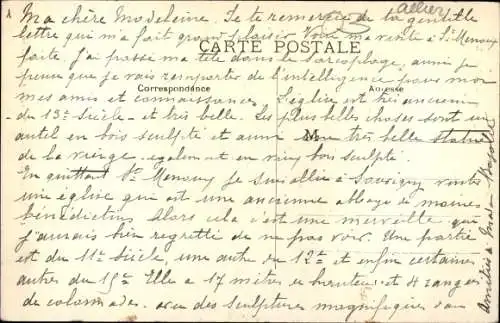 Allier
Ma chère Madeleine. Je te remercie de ta gentille
lettre qui m'a fait grand plaisir. Voici ma visite à St Menoux
CARTE POSTALE
faite. J'ai passé ma tête dans le sarcophage, aussi je
pense que je vais remporter de l'intelligence pour moi
Correspondance
Adresse
mes amis et connaissances. L'église est très ancienne
- du 12e siècle - et très belle. Les plus belles choses sont un
autel en bois sculpté et aussi une très belle statue
M
de la vierge également en vieux bois sculpté.
En quittant St Menoux je suis allée à Souvigny visiter
une église qui est une ancienne abbaye de moines
bénédictins. Alors cela c'est une merveille que
j'aurais bien regretté de ne pas voir. Une partie
est du 11e siècle, une autre du 12e et enfin certaines
autres du 15e. Elle a 17 mètres en hauteur et 4 rangées
de colonnades avec des sculptures magnifiques dans
Amitiés à